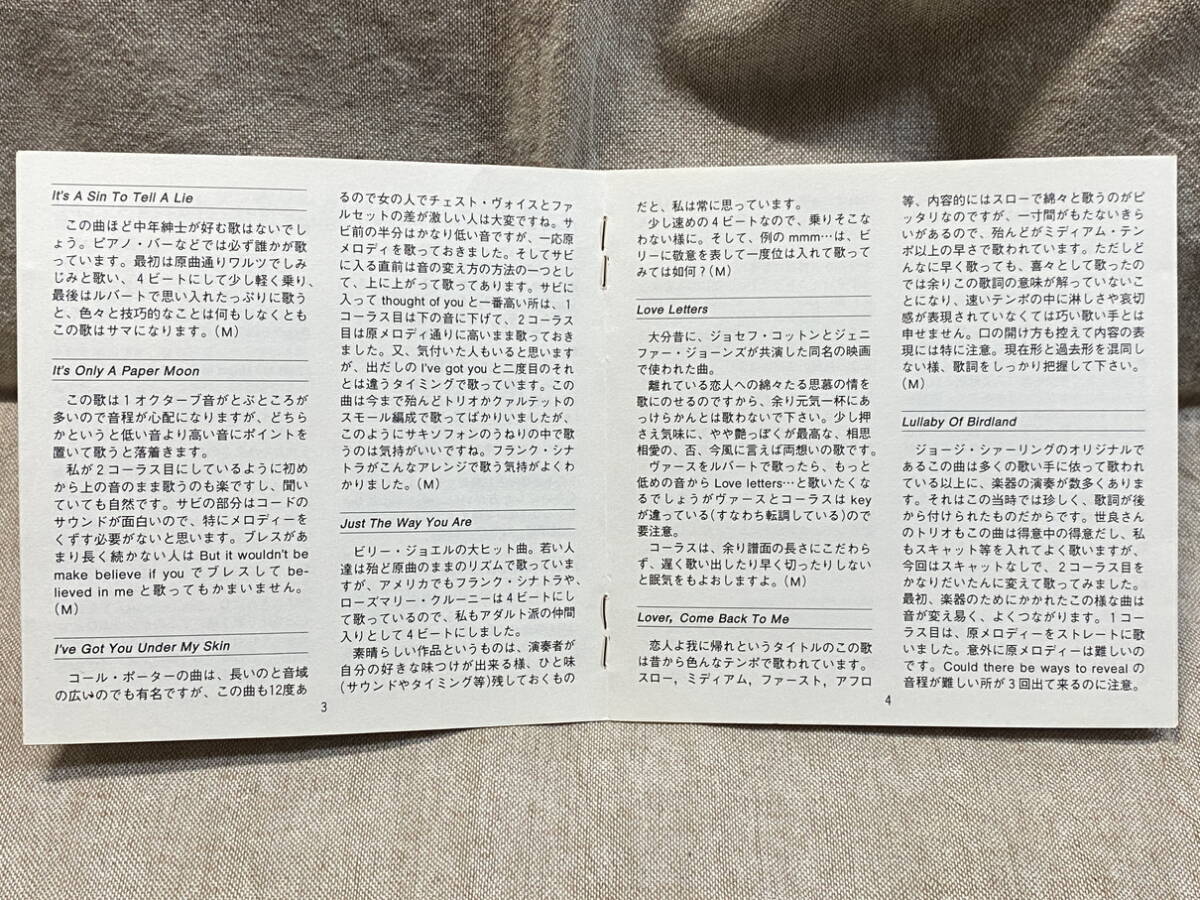 It's A Sin To Tell A Lie
この曲ほど中年紳士が好む歌はないでし
ょう。ピアノ・バーなどでは必ず誰かが歌
っています。最初は原曲通りワルツでしみ
じみと歌い、4ビートにして少し軽く乗り、
最後はルバートで思い入れたっぷりに歌う
と、色々と技巧的なことは何もしなくとも
この歌はサマになります。(M)
It's Only A Paper Moon
この歌は1オクターブ音がとぶところが
多いので音程が心配になりますが、どちら
かというと低い音より高い音にポイントを
置いて歌うと落着きます。
私が2コーラス目にしているように初め
から上の音のまま歌うのも楽ですし、聞い
ていても自然です。サビの部分はコードの
サウンドが面白いので、特にメロディーを
くずす必要がないと思います。ブレスがあ
まり長く続かない人は But it wouldn't be
make believe if you でブレスして be-
lieved in me と歌ってもかまいません。
(M)
I've Got You Under My Skin
コール・ポーターの曲は、長いのと音域
の広いのでも有名ですが、この曲も12度あ
るので女の人でチェスト・ヴォイスとファ
ルセットの差が激しい人は大変ですね。サ
ビ前の半分はかなり低い音ですが、一応原
メロディを歌っておきました。そしてサビ
に入る直前は音の変え方の方法の一つとし
て、上に上がって歌ってあります。サビに
入って thought of you と一番高い所は、1
コーラス目は下の音に下げて、2コーラス
目は原メロディ通りに高いまま歌っておき
ました。又、気付いた人もいると思います
が、出だしの I've got you と二度目のそれ
とは違うタイミングで歌っています。この
曲は今まで殆んどトリオかクァルテットの
スモール編成で歌ってばかりいましたが、
このようにサキソフォンのうねりの中で歌
うのは気持がいいですね。フランク・シナ
トラがこんなアレンジで歌う気持がよくわ
かりました。(M)
Just The Way You Are
ビリー・ジョエルの大ヒット曲。若い人
達は殆ど原曲のままのリズムで歌っていま
すが、アメリカでもフランク・シナトラや、
ローズマリー・クルーニーは4ビートにし
て歌っているので、私もアダルト派の仲間
入りとして4ビートにしました。
素晴らしい作品というものは、演奏者が
自分の好きな味つけが出来る様、ひと味
(サウンドやタイミング等)残しておくもの
3
だと、私は常に思っています。
少し速めの4ビートなので、乗りそこな
わない様に。そして、例の mmm…は、ビ
リーに敬意を表して一度位は入れて歌って
みては如何?(M)
Love Letters
大分昔に、ジョセフ・コットンとジェニ
ファー・ジョーンズが共演した同名の映画
で使われた曲。
離れている恋人への綿々たる思慕の情を
歌にのせるのですから、余り元気一杯にあ
っけらかんとは歌わないで下さい。少し押
さえ気味に、やや艶っぽくが最高な、相思
相愛の、否、今風に言えば両想いの歌です。
ヴァースをルバートで歌ったら、もっと
低めの音から Love letters…と歌いたくな
るでしょうがヴァースとコーラスは key
が違っている(すなわち転調している)ので
要注意。
コーラスは、余り譜面の長さにこだわら
ず、遅く歌い出したり早く切ったりしない
と眠気をもよおしますよ。(M)
Lover, Come Back To Me
恋人よ我に帰れというタイトルのこの歌
は昔から色んなテンポで歌われています。
スロー,ミディアム,ファースト,アフロ
等、内容的にはスローで綿々と歌うのがピ
ッタリなのですが、一寸間がもたないきら
いがあるので、殆んどがミディアム・テン
ポ以上の早さで歌われています。ただしど
んなに早く歌っても、喜々として歌ったの
では余りこの歌詞の意味が解っていないこ
とになり、速いテンポの中に淋しさや哀切
感が表現されていなくては巧い歌い手とは
申せません。口の開け方も控えて内容の表
現には特に注意。現在形と過去形を混同し
ない様、歌詞をしっかり把握して下さい。
(M)
Lullaby Of Birdland
ジョージ・シァーリングのオリジナルで
あるこの曲は多くの歌い手に依って歌われ
ている以上に、楽器の演奏が数多くありま
す。それはこの当時では珍しく、歌詞が後
から付けられたものだからです。世良さん
のトリオもこの曲は得意中の得意だし、私
もスキャット等を入れてよく歌いますが、
今回はスキャットなしで、2コーラス目を
かなりだいたんに変えて歌ってみました。
最初、楽器のためにかかれたこの様な曲は
音が変え易く、よくつながります。1コー
ラス目は、原メロディーをストレートに歌
いました。意外に原メロディーは難しいの
です。Could there be ways to reveal の
音程が難しい所が3回出て来るのに注意。
4